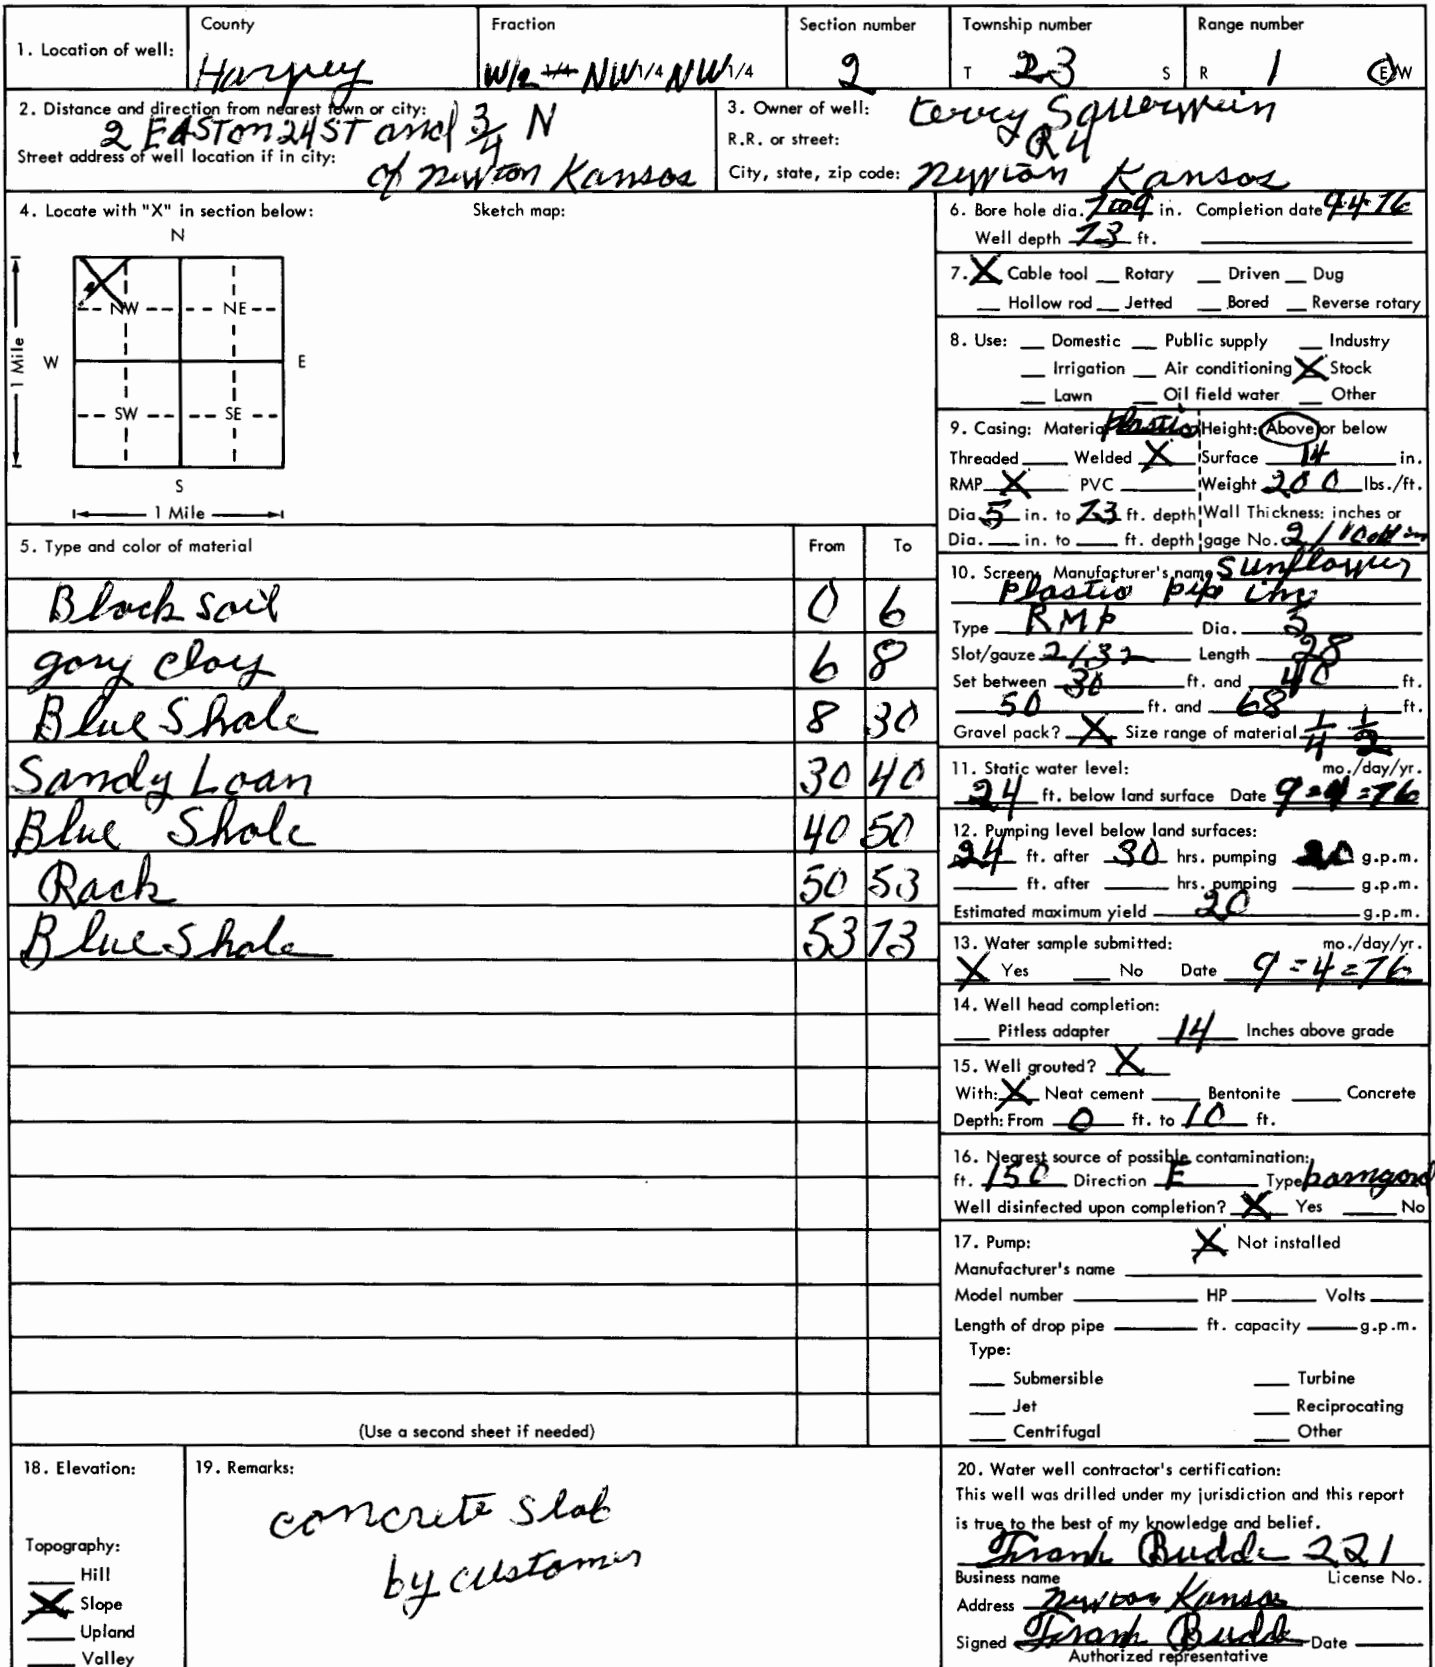 1. Location of well: County Harvey Fraction W/2 1/4 NW 1/4 NW 1/4 Section number 2 Township number T 23 S Range number R 1 E/W
2. Distance and direction from nearest town or city: 2 EAST on 24 ST and 3/4 N
Street address of well location if in city: of Newton Kansas
3. Owner of well: Terry
R.R. or street: R4
City, state, zip code: Newton Kansas
4. Locate with "X" in section below: Sketch map:
N
NW NE
W E
1 Mile
SW SE
S
1 Mile
5. Type and color of material From To
Black soil 0 6
gary clay 6 8
Blue Shale 8 30
Sandy Loan 30 40
Blue Shale 40 50
Rock 50 53
Blue Shale 53 73
(Use a second sheet if needed)
6. Bore hole dia. 7 to 9 in. Completion date 9-4-76
Well depth 73 ft.
7. X Cable tool Rotary Driven Dug
Hollow rod Jetted Bored Reverse rotary
8. Use: Domestic Public supply Industry
Irrigation Air conditioning X Stock
Lawn Oil field water Other
9. Casing: Material plastic Height: Above or below
Threaded Welded X Surface 14 in.
RMP X PVC Weight 200 lbs./ft.
Dia. 5 in. to 73 ft. depth Wall Thickness: inches or
Dia. in. to ft. depth gage No.
10. Screen: Manufacturer's name Sunflower
Plastic pip ing
Type RMP Dia. 5
Slot/gauze 2/32 Length 28
Set between 30 ft. and 40 ft.
50 ft. and 68 ft.
Gravel pack? X Size range of material 1/4 1/2
11. Static water level: mo./day/yr.
24 ft. below land surface Date 9=4=76
12. Pumping level below land surfaces:
24 ft. after 30 hrs. pumping 20 g.p.m.
ft. after hrs. pumping g.p.m.
Estimated maximum yield 20 g.p.m.
13. Water sample submitted: mo./day/yr.
X Yes No Date 9=4=76
14. Well head completion:
Pitless adapter 14 Inches above grade
15. Well grouted? X
With: X Neat cement Bentonite Concrete
Depth: From 0 ft. to 10 ft.
16. Nearest source of possible contamination:
ft. 150 Direction E Type
Well disinfected upon completion? X Yes No
17. Pump: X Not installed
Manufacturer's name
Model number HP Volts
Length of drop pipe ft. capacity g.p.m.
Type:
Submersible Turbine
Jet Reciprocating
Centrifugal Other
18. Elevation:
Topography:
Hill
X Slope
Upland
Valley
19. Remarks:
concrete slab
by customer
20. Water well contractor's certification:
This well was drilled under my jurisdiction and this report
is true to the best of my knowledge and belief.
Frank Budde 221
Business name License No.
Address Newton Kansas
Signed Frank Budde Date
Authorized representative